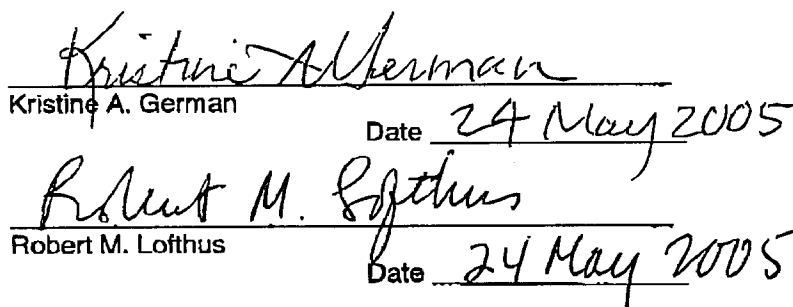 Kristine A. German
Kristine A. German
Date 24 May 2005
Robert M. Lofthus
Robert M. Lofthus
Date 24 May 2005